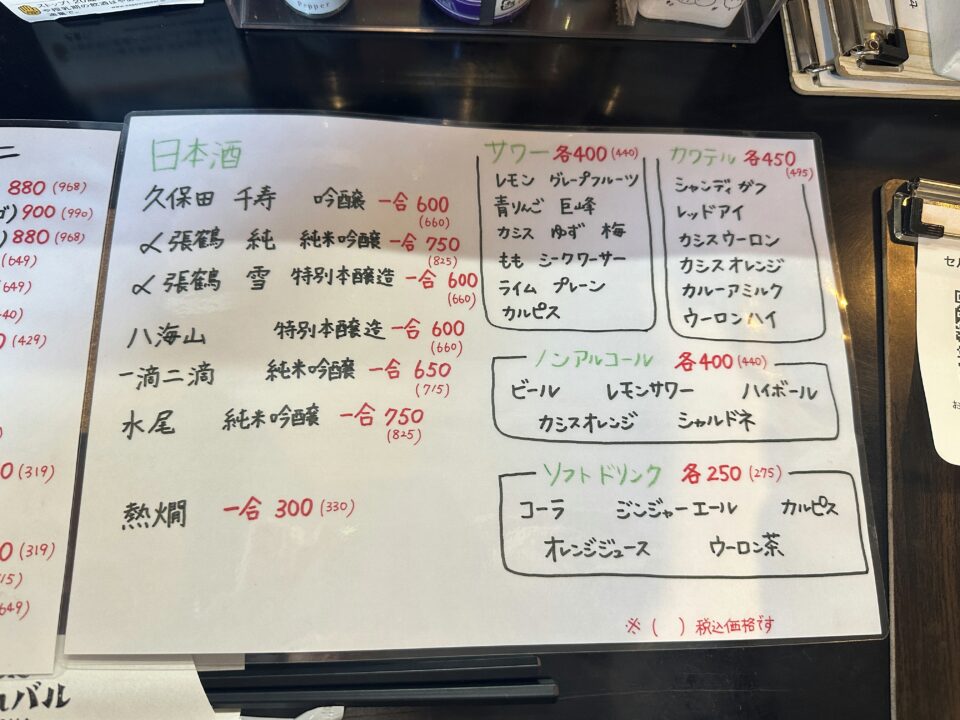 日本酒
久保田 千寿 吟醸 一合 600
(660)
〆張鶴 純 純米吟醸 一合 750
(825)
〆張鶴 雪 特別本醸造 一合 600
(660)
八海山 特別本醸造 一合 600
(660)
一滴二滴 純米吟醸 一合 650
(715)
水尾 純米吟醸 一合 750
(825)
熱燗 一合 300 (330)
サワー 各400 (440)
レモン グレープフルーツ
青りんご 巨峰
カシス ゆず 梅
もも シークワーサー
ライム プレーン
カルピス
カクテル 各450
(495)
シャンディガフ
レッドアイ
カシスウーロン
カシスオレンジ
カルーアミルク
ウーロンハイ
ノンアルコール 各400 (440)
ビール レモンサワー ハイボール
カシスオレンジ シャルドネ
ソフトドリンク 各250 (275)
コーラ ジンジャーエール カルピス
オレンジジュース ウーロン茶
※ ( ) 税込価格です
880 (968)
900 (990)
880 (968)
(649)
(429)
(319)
(319)
バル
Pepper